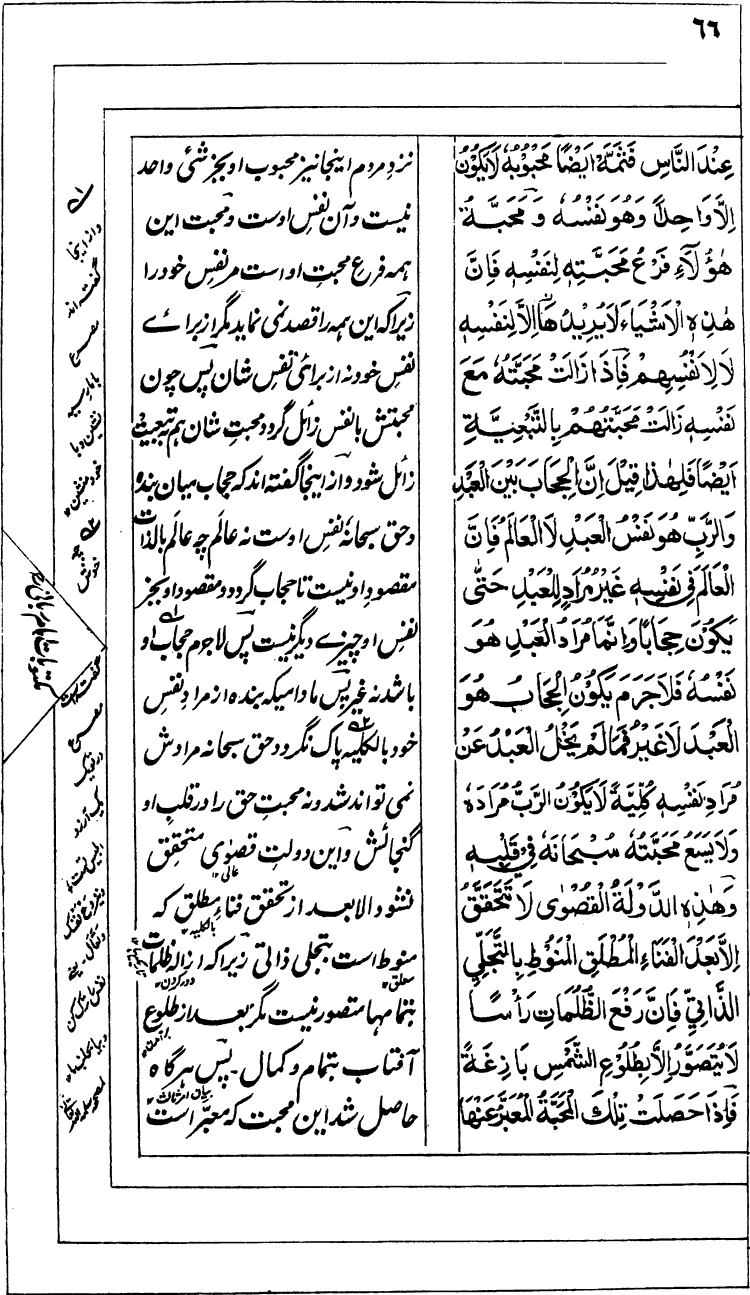 ٦٦
عِنْدَ النَّاسِ فَثَمَّهْ اَيْضًا مَحْبُوْبُهٗ لَا يَكُوْنُ
اِلَّا وَاحِدًا وَهُوَ نَفْسُهٗ وَ مَحَبَّةُ
هٰؤُلَآءِ فَرْعُ مَحَبَّتِهٖ لِنَفْسِهٖ فَاِنَّ
هٰذِهِ الْاَشْيَاءَ لَا يُرِيْدُهَا اِلَّا لِنَفْسِهٖ
لَا لِاَنْفُسِهِمْ فَاِذَا زَالَتْ مَحَبَّتُهٗ مَعَ
نَفْسِهٖ زَالَتْ مَحَبَّتُهُمْ بِالتَّبْعِيَّةِ
اَيْضًا فَلِهٰذَا قِيْلَ اِنَّ الْحِجَابَ بَيْنَ الْعَبْدِ
وَالرَّبِّ هُوَ نَفْسُ الْعَبْدِ لَا الْعَالَمُ فَاِنَّ
الْعَالَمَ فِيْ نَفْسِهٖ غَيْرُ مُرَادٍ لِلْعَبْدِ حَتّٰى
يَكُوْنَ حِجَابًا وَاِنَّمَا مُرَادُ الْعَبْدِ هُوَ
نَفْسُهٗ فَلَا جَرَمَ يَكُوْنُ الْحِجَابُ هُوَ
الْعَبْدَ لَا غَيْرُ فَمَا لَمْ يَخْلُ الْعَبْدُ عَنْ
مُرَادِ نَفْسِهٖ كُلِّيَّةً لَا يَكُوْنُ الرَّبُّ مُرَادَهٗ
وَلَا يَسَعُ مَحَبَّتُهٗ سُبْحَانَهٗ فِيْ قَلْبِهٖ
وَهٰذِهِ الدَّوْلَةُ الْقُصْوٰى لَا تَتَحَقَّقُ
اِلَّا بَعْدَ الْفَنَاءِ الْمُطْلَقِ الْمَنُوْطِ بِالتَّجَلِّي
الذَّاتِيِّ فَاِنَّ رَفْعَ الظُّلُمَاتِ رَأْسًا
لَا يُتَصَوَّرُ اِلَّا بِطُلُوْعِ الشَّمْسِ بَازِغَةً
فَاِذَا حَصَلَتْ تِلْكَ الْمَحَبَّةُ الْمُعَبَّرُ عَنْهَا
نزد مردم اینجا نیز محبوب او بجز شئی واحد
نیست و آن نفس اوست و محبت این
همه فرع محبت او است مر نفس خود را
زیرا که این همه را قصد نمی نماید مگر از برائے
نفس خود نه از برائی نفس شان پس چون
محبتش با نفس زائل گردد محبت شان هم تبعیت
زائل شود و از اینجا گفته اند که حجاب میان بنده
و حق سبحانه نفس اوست نه عالم چه عالم بالذات
مقصود او نیست تا حجاب گردد و مقصود او بجز
نفس او چیزے دیگر نیست پس لاجرم حجاب او
باشد نه غیر پس مادامیکه بنده از مراد نفس
خود بالکلیه پاک نگردد حق سبحانه مرادش
نمی تواند شد و نه محبت حق را در قلب او
گنجائش و این دولت قصوی متحقق
نشود الا بعد از تحقق فناء مطلق که
منوط است بتجلی ذاتی زیرا که ازاله ظلمات
بتمامها متصور نیست مگر بعد از طلوع
آفتاب بتمام و کمال۔ پس هر گاه
حاصل شد این محبت که معبر است
عالی
بالکلیه
معلق
دور کردن
و از اینجا
گفته اند
مصرع
خویش
مصرع
مکتوبات امام ربانی